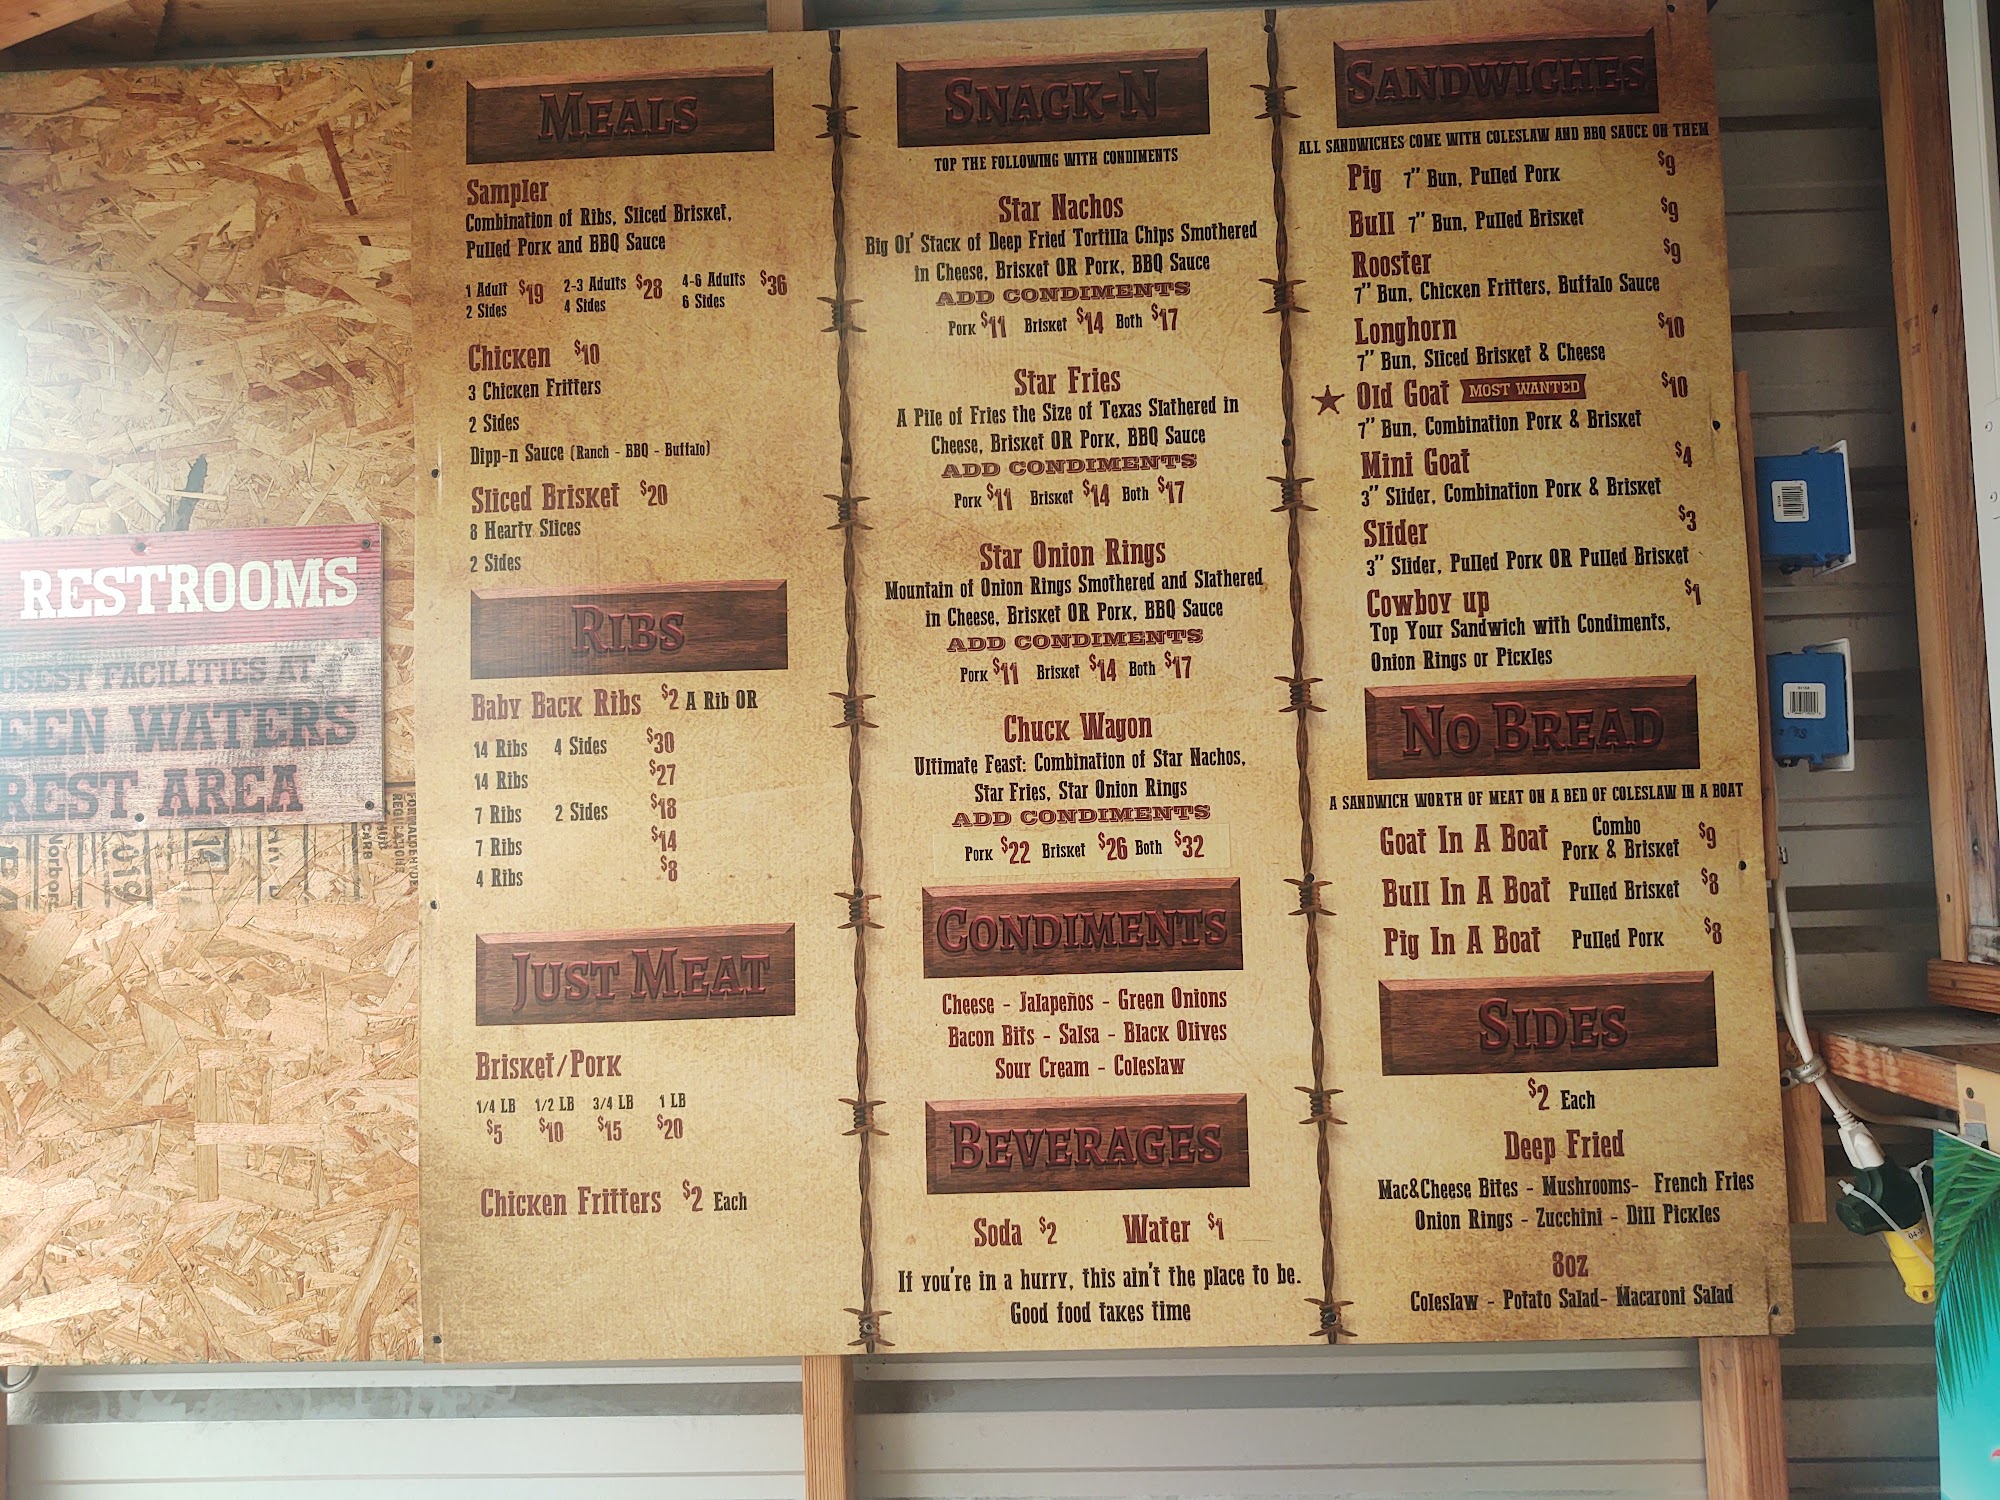 RESTROOMS
FACILITIES AT
WATERS
REST AREA
MEALS
Sampler
Combination of Ribs, Sliced Brisket,
Pulled Pork and BBQ Sauce
1 Adult $19 2-3 Adults $28 4-6 Adults $36
2 Sides 4 Sides 6 Sides
Chicken $10
3 Chicken Fritters
2 Sides
Dipp-n Sauce (Ranch - BBQ - Buffalo)
Sliced Brisket $20
8 Hearty Slices
2 Sides
RIBS
Baby Back Ribs $2 A Rib OR
14 Ribs 4 Sides $30
14 Ribs $27
7 Ribs 2 Sides $18
7 Ribs $14
4 Ribs $8
JUST MEAT
Brisket/Pork
1/4 LB 1/2 LB 3/4 LB 1 LB
$5 $10 $15 $20
Chicken Fritters $2 Each
SNACK-N
TOP THE FOLLOWING WITH CONDIMENTS
Star Nachos
Big Ol' Stack of Deep Fried Tortilla Chips Smothered
in Cheese, Brisket OR Pork, BBQ Sauce
ADD CONDIMENTS
Pork $11 Brisket $14 Both $17
Star Fries
A Pile of Fries the Size of Texas Slathered in
Cheese, Brisket OR Pork, BBQ Sauce
ADD CONDIMENTS
Pork $11 Brisket $14 Both $17
Star Onion Rings
Mountain of Onion Rings Smothered and Slathered
in Cheese, Brisket OR Pork, BBQ Sauce
ADD CONDIMENTS
Pork $11 Brisket $14 Both $17
Chuck Wagon
Ultimate Feast: Combination of Star Nachos,
Star Fries, Star Onion Rings
ADD CONDIMENTS
Pork $22 Brisket $26 Both $32
CONDIMENTS
Cheese - Jalapeños - Green Onions
Bacon Bits - Salsa - Black Olives
Sour Cream - Coleslaw
BEVERAGES
Soda $2 Water $1
If you're in a hurry, this ain't the place to be.
Good food takes time
SANDWICHES
ALL SANDWICHES COME WITH COLESLAW AND BBQ SAUCE ON THEM
Pig 7" Bun, Pulled Pork $9
Bull 7" Bun, Pulled Brisket $9
Rooster $9
7" Bun, Chicken Fritters, Buffalo Sauce
Longhorn $10
7" Bun, Sliced Brisket & Cheese
Old Goat MOST WANTED $10
7" Bun, Combination Pork & Brisket
Mini Goat $4
3" Slider, Combination Pork & Brisket
Slider $3
3" Slider, Pulled Pork OR Pulled Brisket
Cowboy up $1
Top Your Sandwich with Condiments,
Onion Rings or Pickles
NO BREAD
A SANDWICH WORTH OF MEAT ON A BED OF COLESLAW IN A BOAT
Goat In A Boat Combo Pork & Brisket $9
Bull In A Boat Pulled Brisket $8
Pig In A Boat Pulled Pork $8
SIDES
$2 Each
Deep Fried
Mac&Cheese Bites - Mushrooms- French Fries
Onion Rings - Zucchini - Dill Pickles
8oz
Coleslaw - Potato Salad- Macaroni Salad